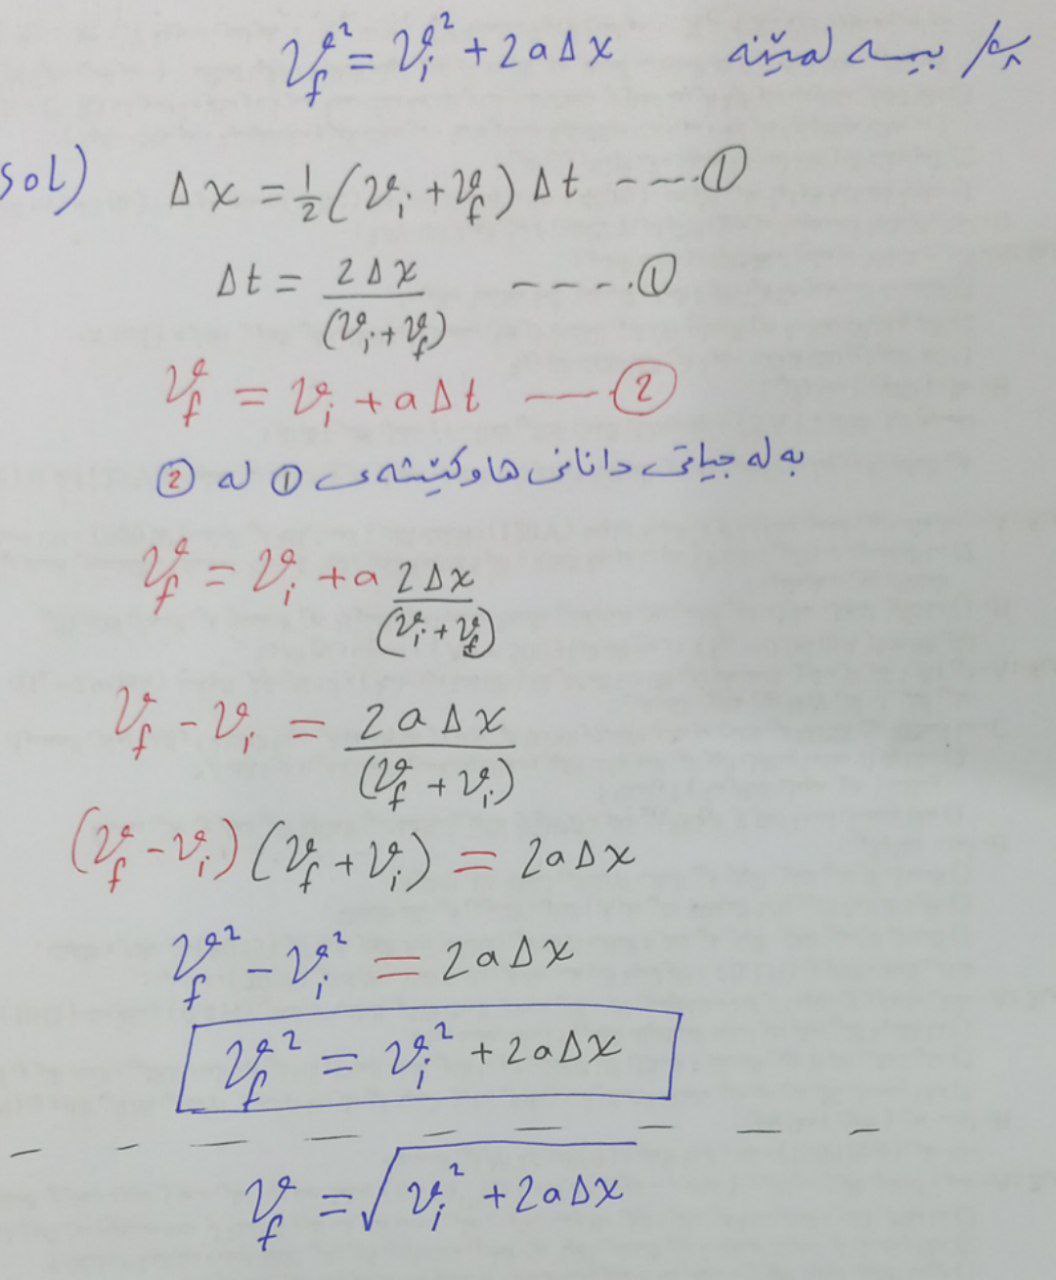 پ/ بیسەلمێنە v_f² = v_i² + 2aΔx
sol) Δx = 1/2 (v_i + v_f) Δt ----①
Δt = 2Δx / (v_i + v_f) ----①
v_f = v_i + aΔt ---②
بە لە جیاتی دانانی هاوکێشەی ① لە ②
v_f = v_i + a 2Δx / (v_i + v_f)
v_f - v_i = 2aΔx / (v_f + v_i)
(v_f - v_i)(v_f + v_i) = 2aΔx
v_f² - v_i² = 2aΔx
v_f² = v_i² + 2aΔx
v_f = √(v_i² + 2aΔx)